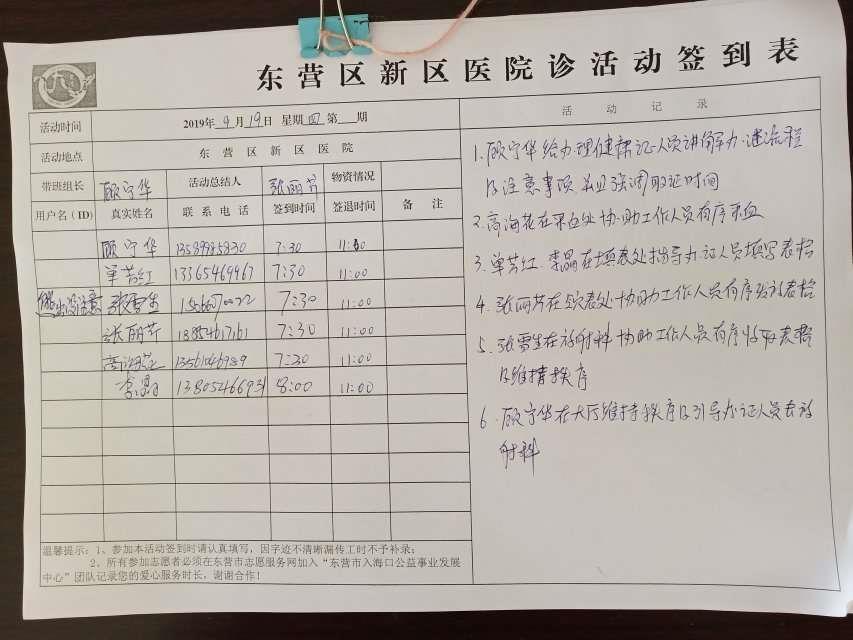 东营区新区医院诊活动签到表
活动时间 2019年9月19日 星期四 第 期
活动地点 东营区新区医院
带班组长 顾宁华 活动总结人 张丽芹 物资情况
用户名（ID） 真实姓名 联系电话 签到时间 签退时间 备注
顾宁华 7:30
单芳红 13365469967 7:30 11:00
张雪生 7:30 11:00
张丽芹 7:30 11:00
7:30 11:00
李晶 8:00 11:00
温馨提示：1、参加本活动签到时请认真填写，因字迹不清晰漏传工时不予补录；
2、所有参加志愿者必须在东营市志愿服务网加入“东营市入海口公益事业发展
中心”团队记录您的爱心服务时长，谢谢合作！
活动记录
1.顾宁华给办理健康证人员讲解办证流程
及注意事项并且强调取证时间
2.高海花在采血处协助工作人员有序采血
3.单芳红、李晶在填表处指导办证人员填写表格
4.张丽芹在交表处协助工作人员有序发放表格
5.张雪生在放射科协助工作人员有序收取表格
及维持秩序
6.顾宁华在大厅维持秩序及引导办证人员去放
射科